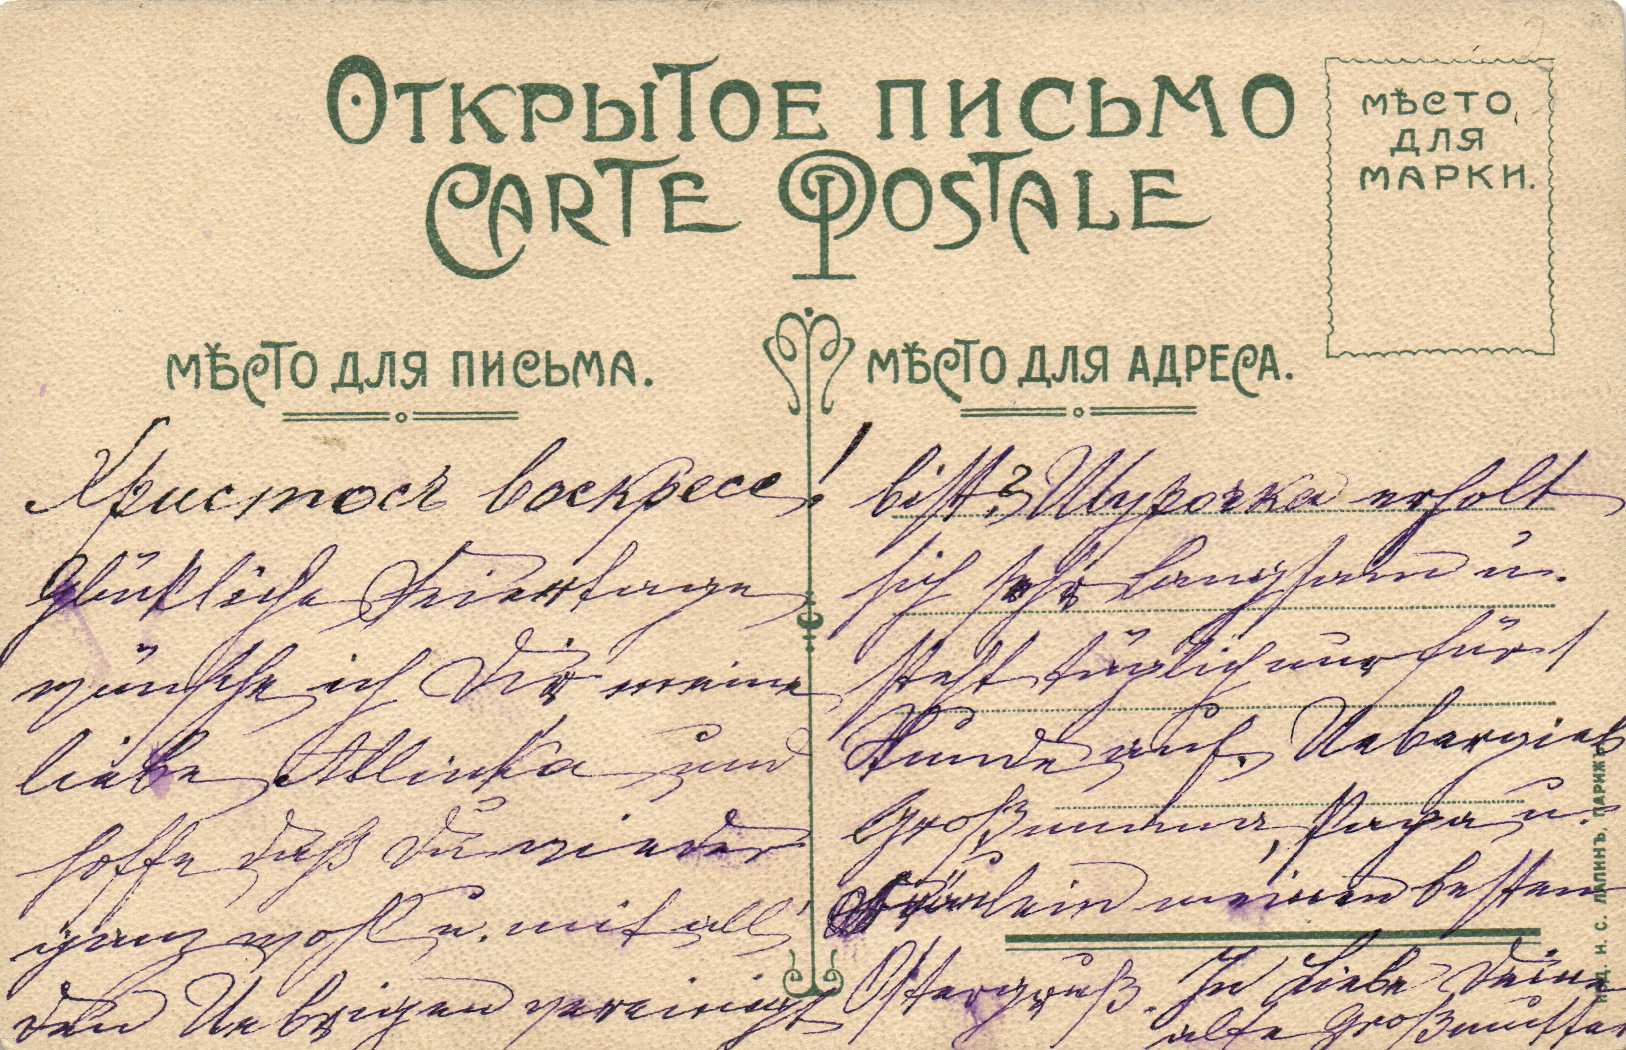 Открытое письмо
Carte Postale
Мѣсто
для
марки.
Мѣсто для письма.
Христосъ воскресе!
Glückliche Feiertage
wünsche ich Dir meine
liebe Allinka und
hoffe daß Du wieder
ganz wohl u. mit all'
den Uebrigen vereinigt
Мѣсто для адреса.
bist? Шурочка erholt
sich sehr langsam u.
steht täglich nur für 1
Stunde auf. Uebergieb
Großmama, Papa u.
Fräulein meinen besten
Ostergruß. In Liebe Deine
alte Großmutter
Изд. И. С. Лапинъ. Парижъ